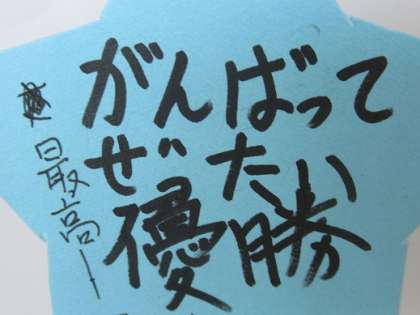 がんばって
ぜったい
優勝
最高ー